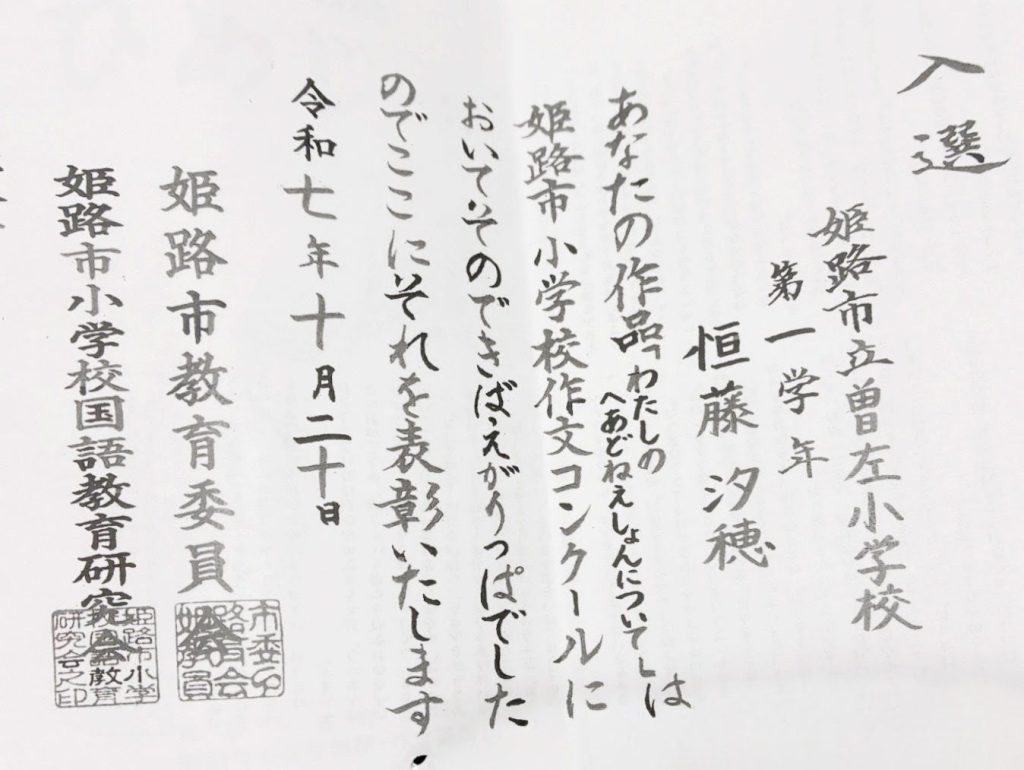 入選
姫路市立曽左小学校
第一学年
恒藤汐穂
あなたの作品「わたしの
へあどねえしょんについて」は
姫路市小学校作文コンクールに
おいてそのできばえがりっぱでした
のでここにそれを表彰いたします.
令和七年十月二十日
姫路市教育委員会
姫路市小学校国語教育研究会